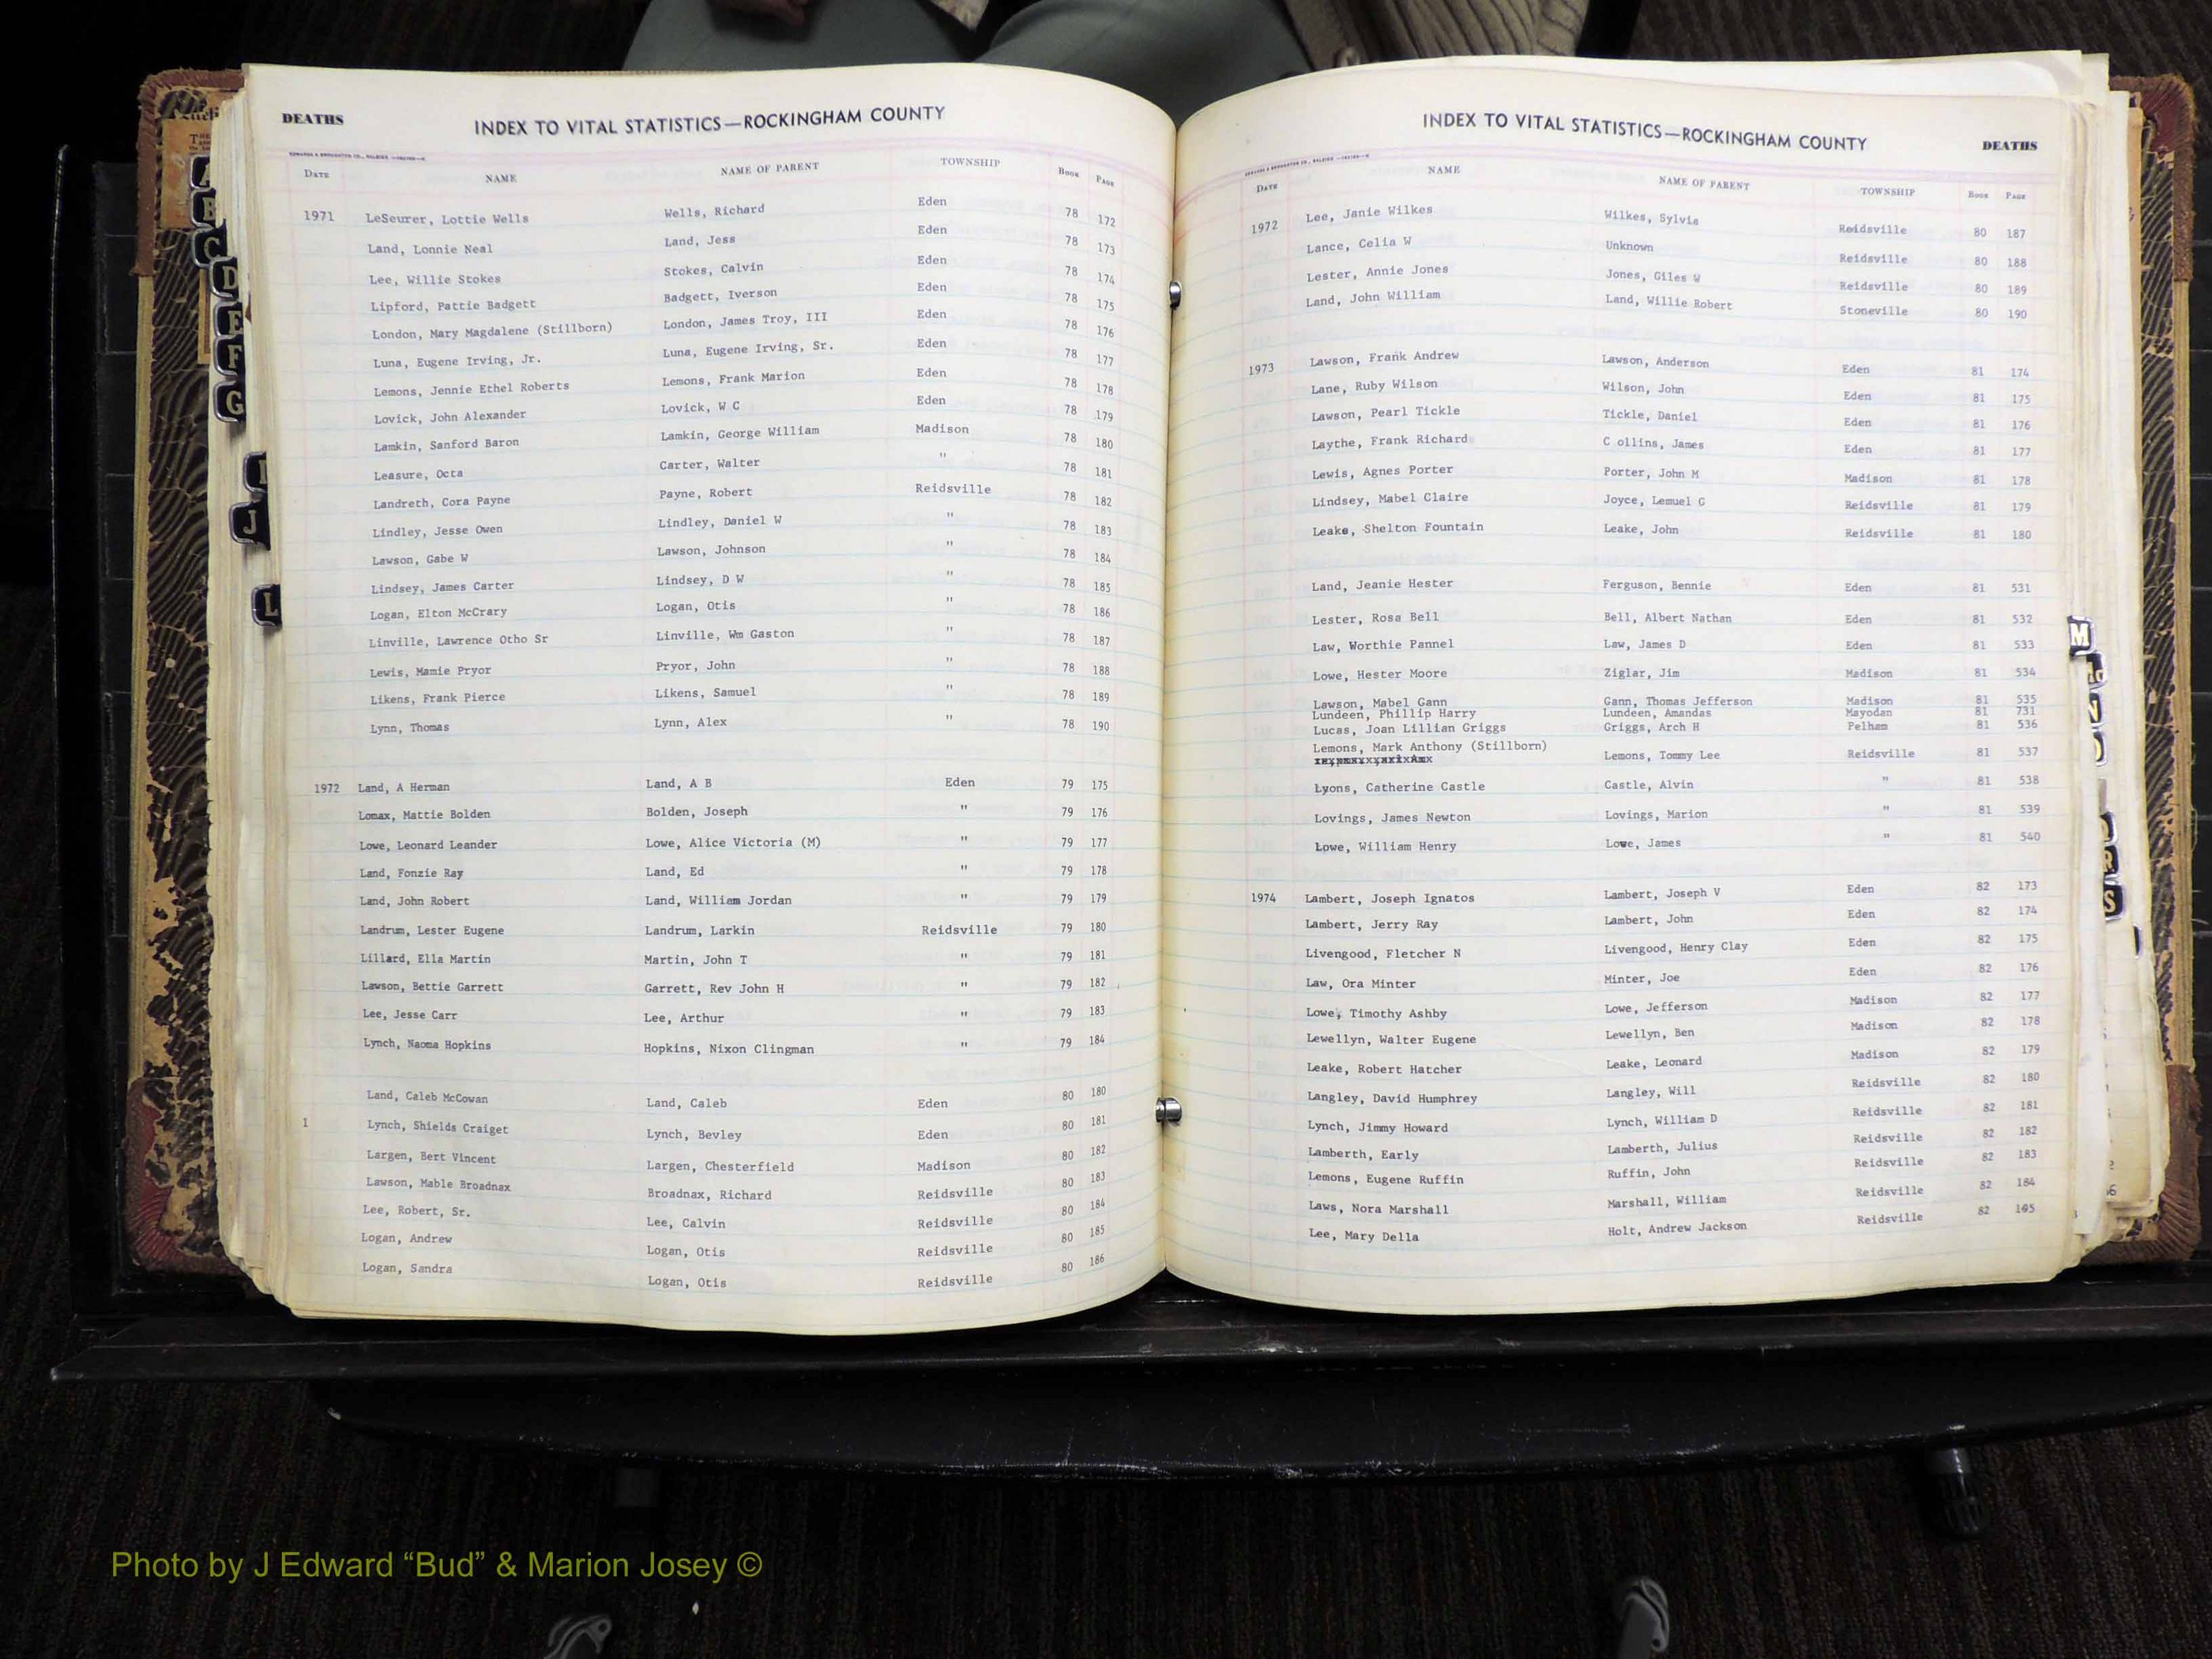 DEATHS
INDEX TO VITAL STATISTICS—ROCKINGHAM COUNTY
DATE NAME NAME OF PARENT TOWNSHIP BOOK PAGE
1971 LeSeurer, Lottie Wells Wells, Richard Eden 78 172
Land, Lonnie Neal Land, Jess Eden 78 173
Lee, Willie Stokes Stokes, Calvin Eden 78 174
Lipford, Pattie Badgett Badgett, Iverson Eden 78 175
London, Mary Magdalene (Stillborn) London, James Troy, III Eden 78 176
Luna, Eugene Irving, Jr. Luna, Eugene Irving, Sr. Eden 78 177
Lemons, Jennie Ethel Roberts Lemons, Frank Marion Eden 78 178
Lovick, John Alexander Lovick, W C Eden 78 179
Lamkin, Sanford Baron Lamkin, George William Madison 78 180
Leasure, Octa Carter, Walter " 78 181
Landreth, Cora Payne Payne, Robert Reidsville 78 182
Lindley, Jesse Owen Lindley, Daniel W " 78 183
Lawson, Gabe W Lawson, Johnson " 78 184
Lindsey, James Carter Lindsey, D W " 78 185
Logan, Elton McCrary Logan, Otis " 78 186
Linville, Lawrence Otho Sr Linville, Wm Gaston " 78 187
Lewis, Mamie Pryor Pryor, John " 78 188
Likens, Frank Pierce Likens, Samuel " 78 189
Lynn, Thomas Lynn, Alex " 78 190
1972 Land, A Herman Land, A B Eden 79 175
Lomax, Mattie Bolden Bolden, Joseph " 79 176
Lowe, Leonard Leander Lowe, Alice Victoria (M) " 79 177
Land, Fonzie Ray Land, Ed " 79 178
Land, John Robert Land, William Jordan " 79 179
Landrum, Lester Eugene Landrum, Larkin Reidsville 79 180
Lillard, Ella Martin Martin, John T " 79 181
Lawson, Bettie Garrett Garrett, Rev John H " 79 182
Lee, Jesse Carr Lee, Arthur " 79 183
Lynch, Naoma Hopkins Hopkins, Nixon Clingman " 79 184
Land, Caleb McCowan Land, Caleb Eden 80 180
1 Lynch, Shields Craiget Lynch, Bevley Eden 80 181
Largen, Bert Vincent Largen, Chesterfield Madison 80 182
Lawson, Mable Broadnax Broadnax, Richard Reidsville 80 183
Lee, Robert, Sr. Lee, Calvin Reidsville 80 184
Logan, Andrew Logan, Otis Reidsville 80 185
Logan, Sandra Logan, Otis Reidsville 80 186
INDEX TO VITAL STATISTICS—ROCKINGHAM COUNTY
DEATHS
DATE NAME NAME OF PARENT TOWNSHIP BOOK PAGE
1972 Lee, Janie Wilkes Wilkes, Sylvia Reidsville 80 187
Lance, Celia W Unknown Reidsville 80 188
Lester, Annie Jones Jones, Giles W Reidsville 80 189
Land, John William Land, Willie Robert Stoneville 80 190
1973 Lawson, Frank Andrew Lawson, Anderson Eden 81 174
Lane, Ruby Wilson Wilson, John Eden 81 175
Lawson, Pearl Tickle Tickle, Daniel Eden 81 176
Laythe, Frank Richard C ollins, James Eden 81 177
Lewis, Agnes Porter Porter, John M Madison 81 178
Lindsey, Mabel Claire Joyce, Lemuel G Reidsville 81 179
Leake, Shelton Fountain Leake, John Reidsville 81 180
Land, Jeanie Hester Ferguson, Bennie Eden 81 531
Lester, Rosa Bell Bell, Albert Nathan Eden 81 532
Law, Worthie Pannel Law, James D Eden 81 533
Lowe, Hester Moore Ziglar, Jim Madison 81 534
Lawson, Mabel Gann Gann, Thomas Jefferson Madison 81 535
Lundeen, Phillip Harry Lundeen, Amandas Mayodan 81 731
Lucas, Joan Lillian Griggs Griggs, Arch H Pelham 81 536
Lemons, Mark Anthony (Stillborn) Lemons, Tommy Lee Reidsville 81 537
Lyons, Catherine Castle Castle, Alvin " 81 538
Lovings, James Newton Lovings, Marion " 81 539
Lowe, William Henry Lowe, James " 81 540
1974 Lambert, Joseph Ignatos Lambert, Joseph V Eden 82 173
Lambert, Jerry Ray Lambert, John Eden 82 174
Livengood, Fletcher N Livengood, Henry Clay Eden 82 175
Law, Ora Minter Minter, Joe Eden 82 176
Lowe, Timothy Ashby Lowe, Jefferson Madison 82 177
Lewellyn, Walter Eugene Lewellyn, Ben Madison 82 178
Leake, Robert Hatcher Leake, Leonard Madison 82 179
Langley, David Humphrey Langley, Will Reidsville 82 180
Lynch, Jimmy Howard Lynch, William D Reidsville 82 181
Lamberth, Early Lamberth, Julius Reidsville 82 182
Lemons, Eugene Ruffin Ruffin, John Reidsville 82 183
Laws, Nora Marshall Marshall, William Reidsville 82 184
Lee, Mary Della Holt, Andrew Jackson Reidsville 82 185
A
B
C
D
E
F
G
J
L
M
N
R
S
Photo by J Edward “Bud” & Marion Josey ©